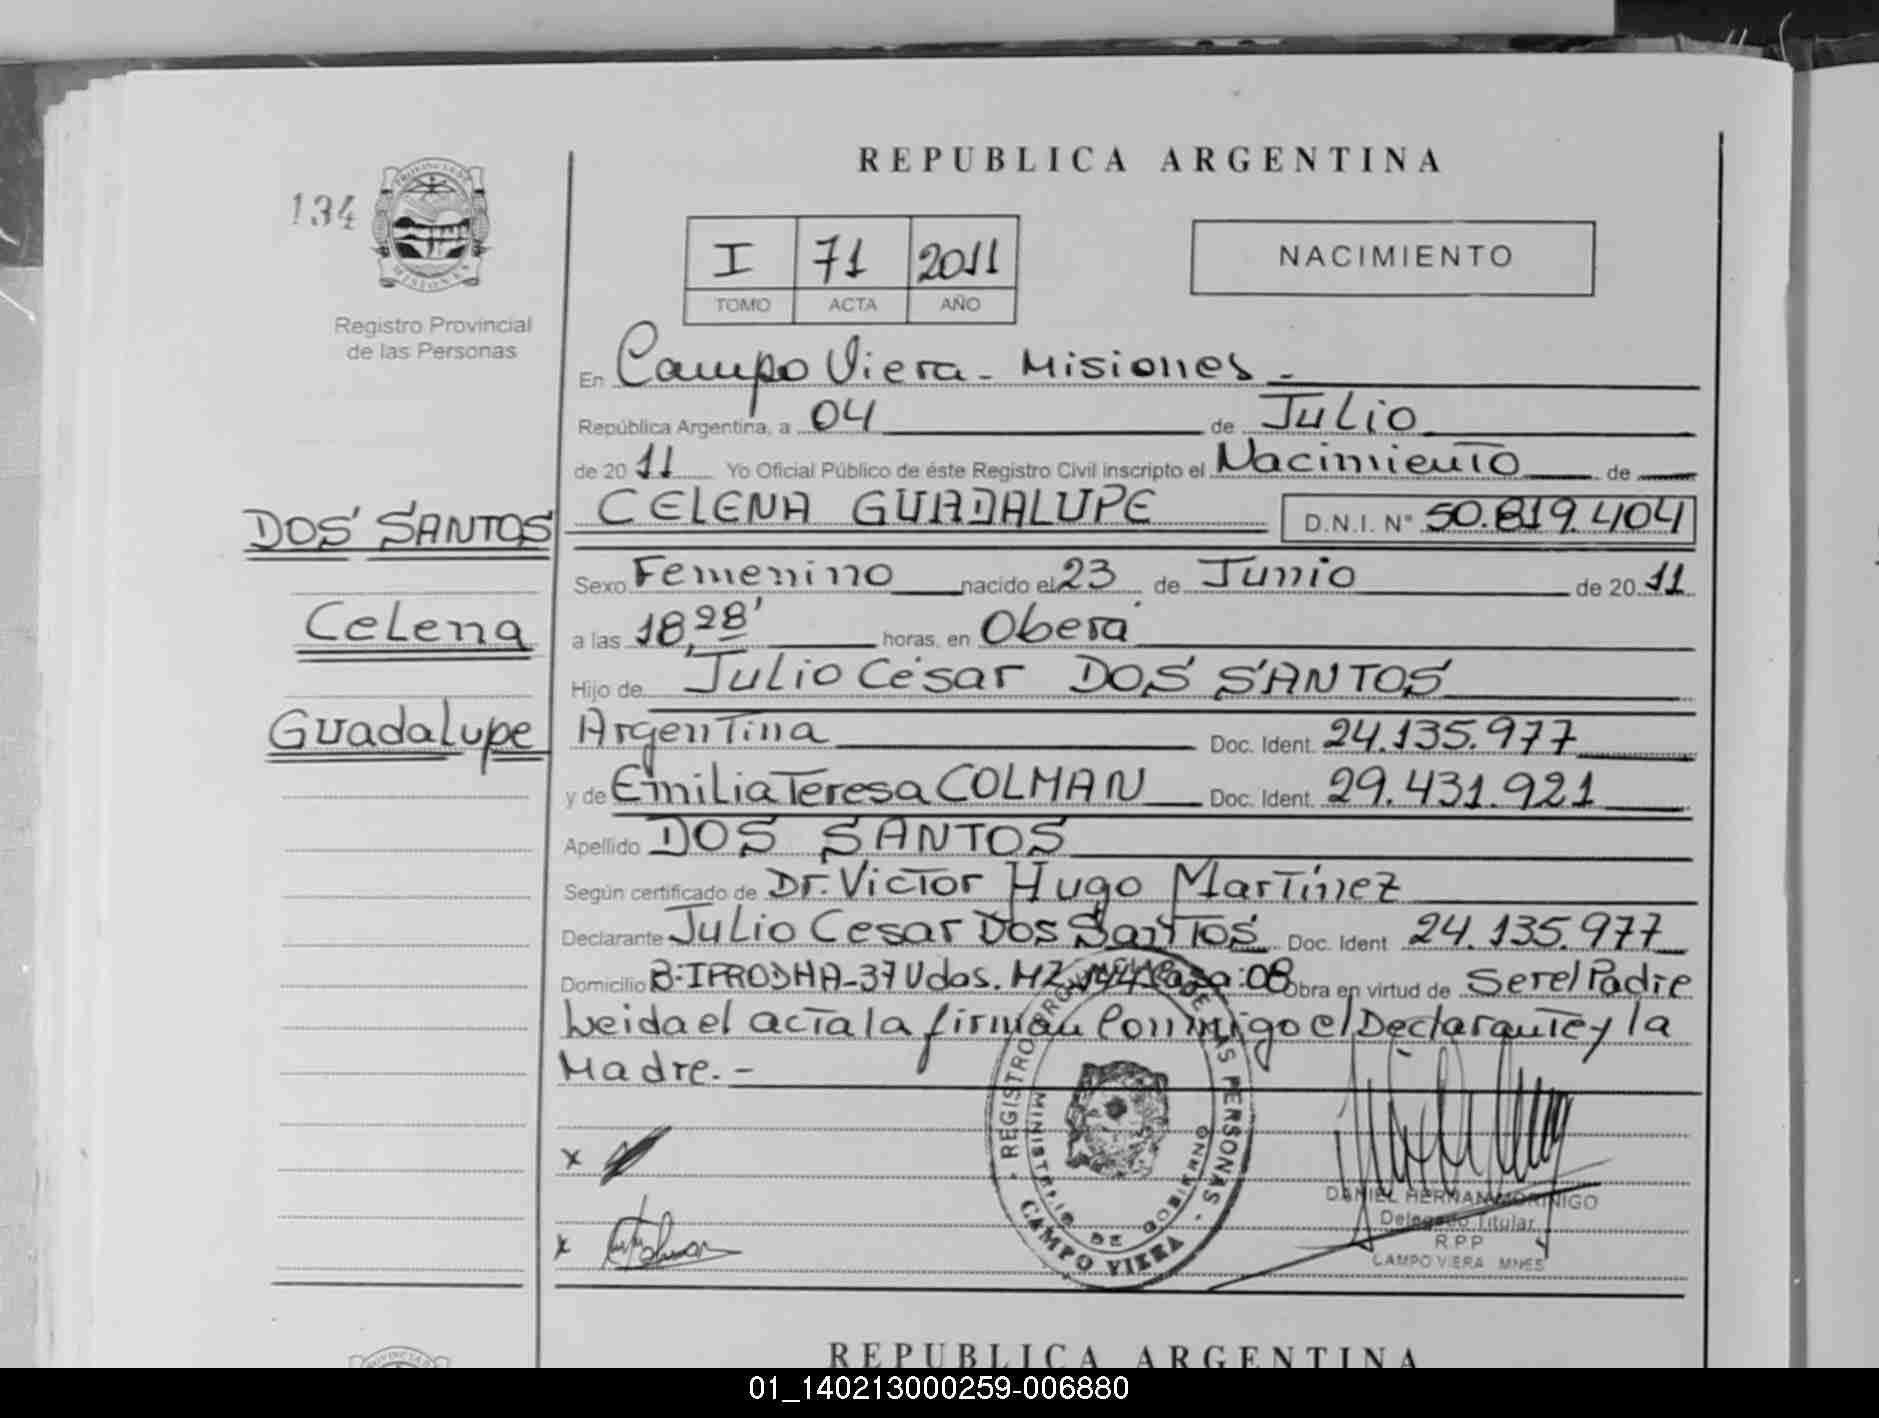 REPUBLICA ARGENTINA
134
PROVINCIA DE
MISIONES
Registro Provincial
de las Personas
I 71 2011
TOMO ACTA AÑO
NACIMIENTO
En Campo Viera - Misiones -
República Argentina, a 04 de Julio
de 20 11 Yo Oficial Público de éste Registro Civil inscripto el Nacimiento de
DOS SANTOS CELENA GUADALUPE D.N.I. N° 50.819.404
Sexo Femenino nacido el 23 de Junio de 20 11
Celena a las 18,28' horas, en Oberá
Hijo de Julio César DOS SANTOS
Guadalupe Argentina Doc. Ident. 24.135.977
y de Emilia Teresa COLMAN Doc. Ident. 29.431.921
Apellido DOS SANTOS
Según certificado de Dr. Victor Hugo Martínez
Declarante Julio Cesar Dos Santos Doc. Ident 24.135.977
Domicilio B: IPRODHA - 37 Vdas. MZ Casa: 08 Obra en virtud de Ser el Padre
Leida el acta la firman Conmigo el Declarante y la
Madre. -
REGISTRO PROVINCIAL DE LAS PERSONAS
MINISTERIO DE GOBIERNO
CAMPO VIERA
x
x
DANIEL HERNAN MORINIGO
Delegado Titular
R.P.P
CAMPO VIERA MNES
REPUBLICA ARGENTINA
01_140213000259-006880